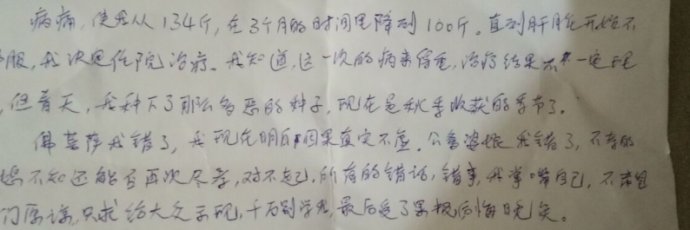 病痛，使我从134斤，在3个月的时间里降到100斤。直到肝脏开始不
服，我决定住院治疗。我知道，这一次的病来信重，治疗结果不一定理
，但春天，我种下了那么多恶的种子，现在是秋季收获的季节了。
佛菩萨我错了，我现在明白因果真实不虚。公婆 我错了，不孝的
不知还能否再次尽孝，对不起，所有的错话，错事，我掌嘴自己，不求
们原谅，只求给大众示现，千万别学我，最后受了果报后悔已晚矣。